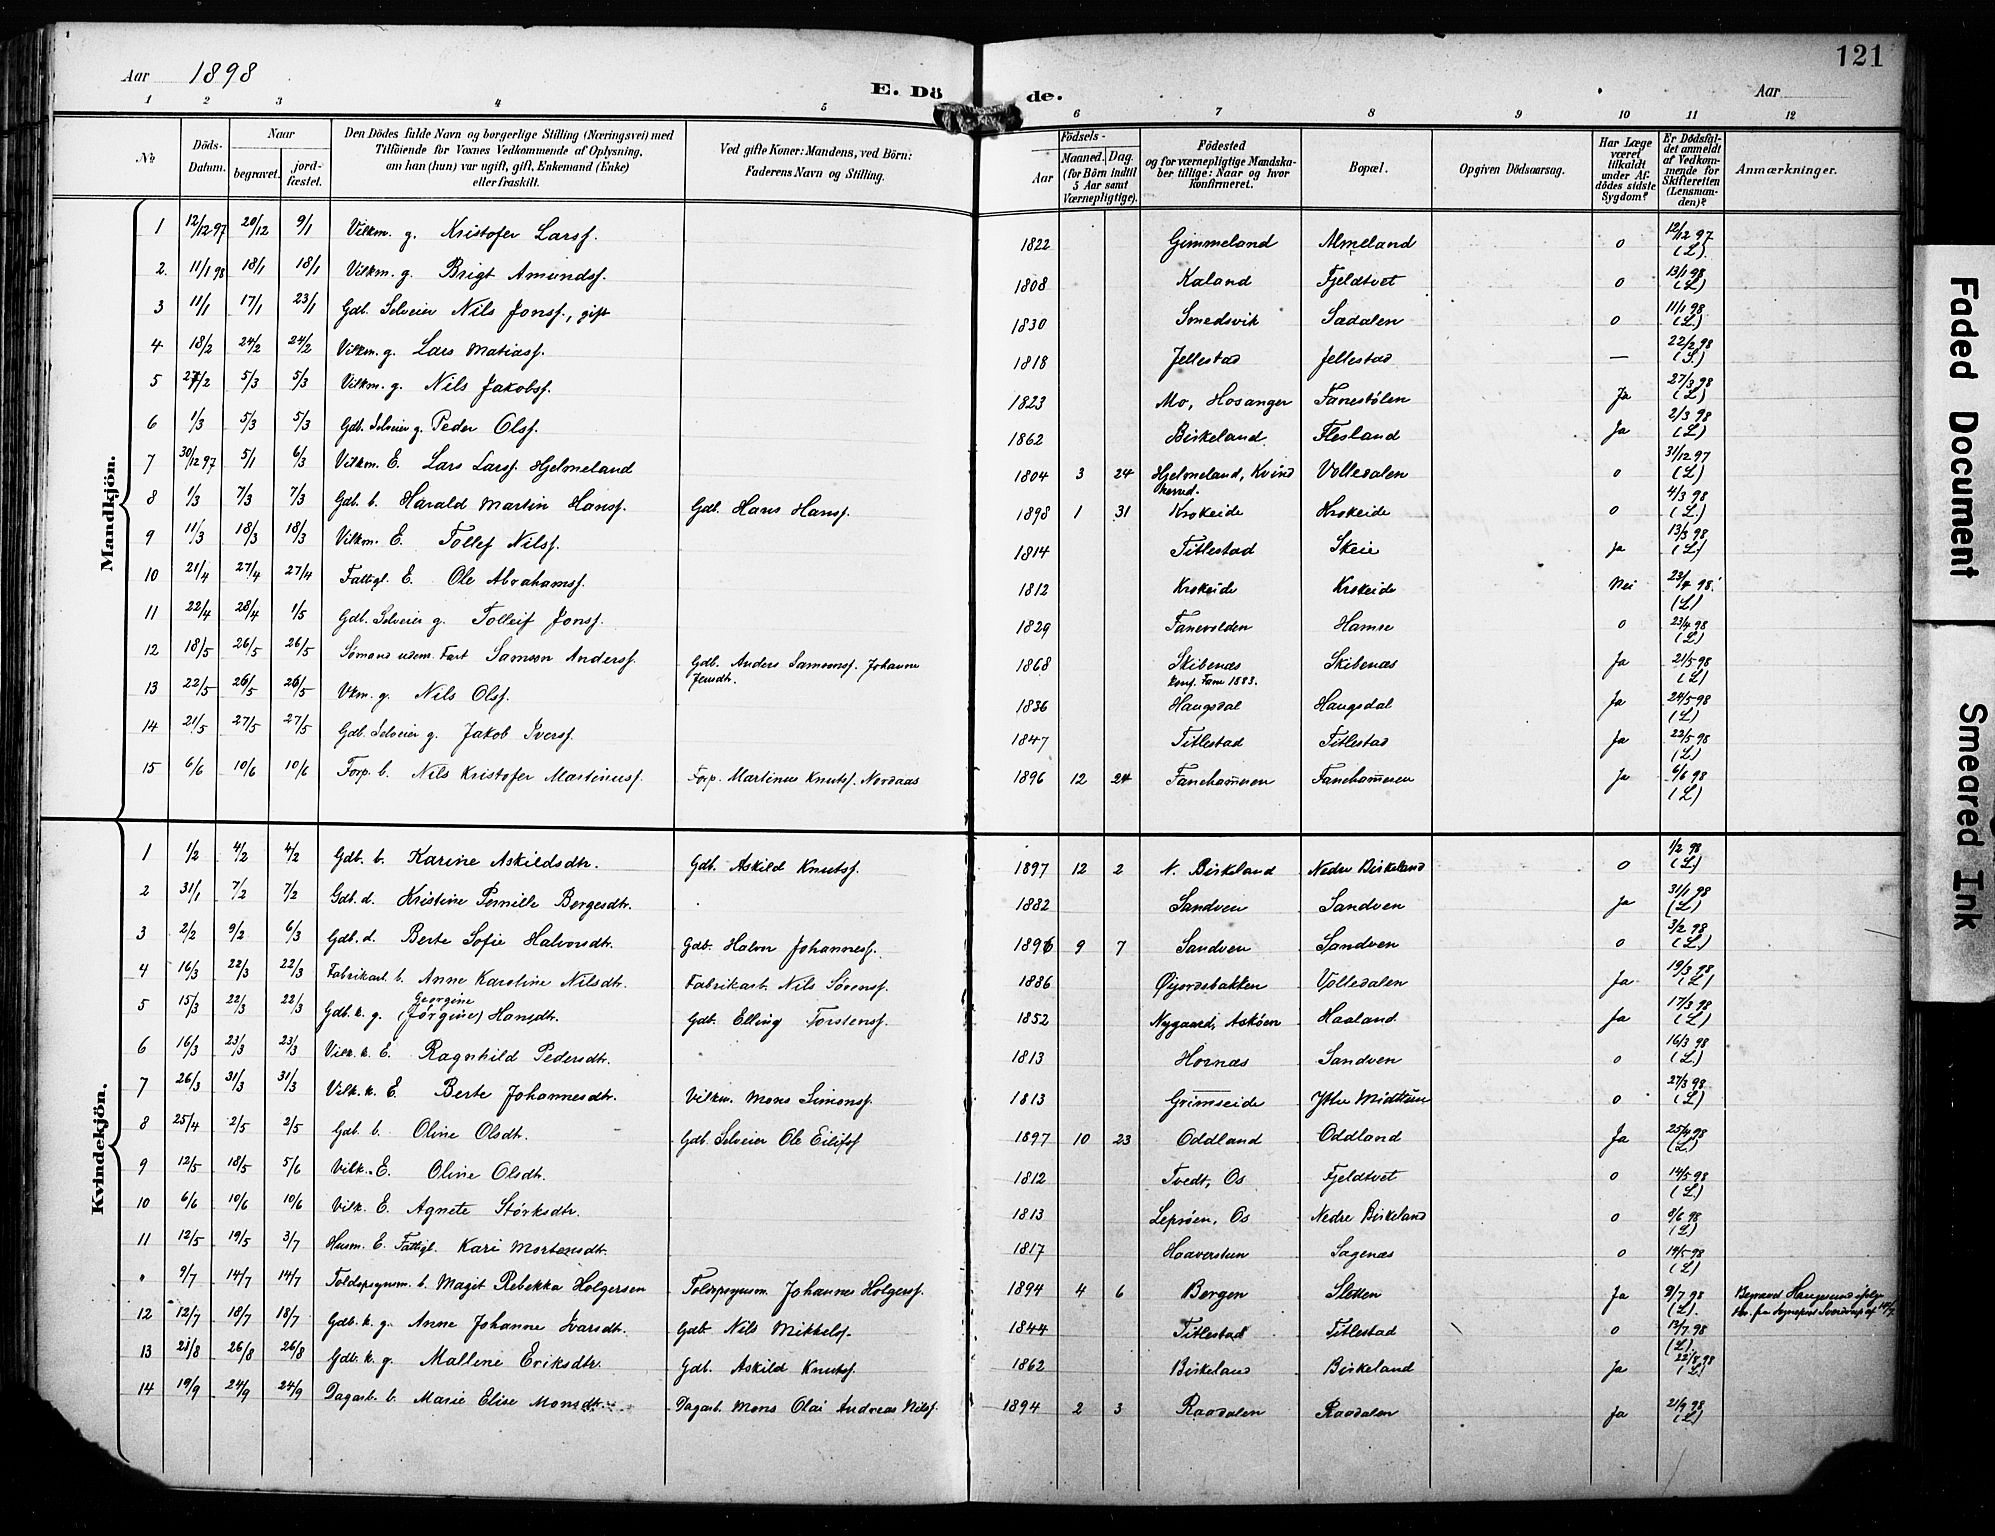 Aar 1898
E. Döde.
121
Aar
1 2 3 4 5 6 7 8 9 10 11 12
No
Döds-Datum.
Naar
begravet.
jord-fæstet.
Den Dödes fulde Navn og borgerlige Stilling (Næringsvei) med
Tilföiende for Voxnes Vedkommende af Oplysning,
om han (hun) var ugift, gift, Enkemand (Enke)
eller fraskilt.
Ved gifte Koner: Mandens, ved Börn:
Faderens Navn og Stilling.
Födsels-
Aar
Maaned. Dag.
(for Börn indtil
5 Aar samt
Værnepligtige).
Födested
og for værnepligtige Mandska-
ber tillige: Naar og hvor
konfirmeret.
Bopæl.
Opgiven Dödsaarsag.
Har Læge
været
tilkaldt
under Af-
dödes sidste
Sygdom?
Er Dödsfal-
det anmeldt
af Vedkom-
mende for
Skifteretten
(Lensman-
den)?
Anmærkninger.
Mandkjön.
1 12/12 97 20/12 9/1 Vilkm. g. Kristofer Larsf. 1822 Gimmeland Almeland o 12/12 97 (L).
2 11/1 98 18/1 18/1 Vilkm. g. Brigt Amundsf. 1808 Kaland Fjeldtvet o 13/1 98 (L)
3 11/1 17/1 23/1 Gdb. Selveier Nils Jonsf., gift 1830 Smedsvik Sædalen o 11/1 98 (L)
4 18/2 24/2 24/2 Vilkm. g. Lars Matiasf. 1818 Jellestad Jellestad — 22/2 98 (L)
5 27/2 5/3 5/3 Vilkm. g. Nils Jakobsf. 1823 Mo, Hosanger Fanestølen Ja 27/3 98 (L)
6 1/3 5/3 5/3 Gdb. Selveier g. Peder Olsf. 1862 Birkeland Flesland Ja 2/3 98 (L)
7 30/12 97 5/1 6/3 Vilkm. E. Lars Larsf. Hjelmeland 1804 3 24 Hjelmeland, Kvind herred. Volledalen o 31/12 97 (L)
8 1/3 7/3 7/3 Gdb. b. Harald Martin Hansf. Gdb. Hans Hansf. 1898 1 31 Krokeide Krokeide o 4/3 98 (L)
9 11/3 18/3 18/3 Vilkm. E. Tollef Nilsf. 1814 Titlestad Skeie Ja 13/3 98 (L)
10 21/4 27/4 27/4 Fattigl. E. Ole Abrahamsf. 1812 Krokeide Krokeide Nei 23/4 98 (L)
11 22/4 28/4 1/5 Gdb. Selveier g. Tolleif Jonsf. 1829 Fanevolden Hamre o 23/4 98 (L)
12 18/5 26/5 26/5 Sømand udem. Fart Samson Andersf. Gdb. Anders Samsonsf. Johanne Jensdtr. 1868 Skibenæs konf. Fane 1883. Skibenæs Ja 21/5 98 (L)
13 22/5 26/5 26/5 Vkm. g. Nils Olsf. 1836 Haugsdal Haugsdal Ja 24/5 98 (L)
14 21/5 27/5 27/5 Gdb. Selveier g. Jakob Iversf. 1847 Titlestad Titlestad Ja 22/5 98 (L)
15 6/6 10/6 10/6 Forp. b. Nils Kristofer Martinusf. Forp. Martinus Knutsf. Nordaas 1896 12 24 Fanehammeren Fanehammeren Ja 6/6 98 (L)
Kvindekjön.
1 1/2 4/2 4/2 Gdb. b. Karine Askildsdtr. Gdb. Askild Knutsf. 1897 12 2 N. Birkeland Nedre Birkeland o 1/2 98 (L)
2 31/1 7/2 7/2 Gdb. d. Kristine Pernille Børgesdtr. 1882 Sandven Sandven Ja 31/1 98 (L)
3 2/2 9/2 6/3 Gdb. d. Berte Sofie Halvorsdtr. Gdb. Halvor Johannesf. 1896 9 7 Sandven Sandven o 3/2 98 (L)
4 16/3 22/3 22/3 Fabrikarb. b. Anne Karoline Nilsdtr. Fabrikarb. Nils Sørensf. 1886 Øijordsbakken Volledalen Ja 19/3 98 (L)
5 15/3 22/3 22/3 Gdb. k. g. Georgine (Jørgine) Hansdtr. Gdb. Elling Torstensf. 1852 Nygaard, Askøen Haaland Ja 17/3 98 (L)
6 16/3 23/3 23/3 Vilk. k. E. Ragnhild Pedersdtr. 1813 Hornæs Sandven o 16/3 98 (L)
7 26/3 31/3 31/3 Vilk. k. E. Berte Johannesdtr. Vilkm. Mons Simonsf. 1813 Grimseide Ytre Midttun o 27/3 98 (L)
8 25/4 2/5 2/5 Gdb. b. Oline Olsdtr. Gdb. Selveier Ole Eilifsf 1897 10 23 Oddland Oddland Ja 25/4 98 (L)
9 12/5 18/5 5/6 Vilk. E. Oline Olsdtr. 1812 Tvedt, Os Fjeldtvet o 14/5 98 (L)
10 6/6 10/6 10/6 Vilk. E. Agnete Størksdtr. 1813 Lepsøen, Os Nedre Birkeland o 8/6 98 (L)
11 12/5 19/5 3/7 Husm. E. Fattigl. Kari Mortensdtr. 1817 Haaverstun Sagenæs o 14/5 98 (L)
9/7 14/7 14/7 Toldopsynsm. b. Magit Rebekka Holgersen Toldopsynsm. Johannes Holgersf. 1894 4 6 Bergen Sletten Ja 9/7 98 (L). Begravet Haugesund
12 12/7 18/7 18/7 Gdb. k. g. Anne Johanne Ivarsdtr. Gdb. Nils Mikkelsf. 1844 Titlestad Titlestad o 13/7 98 (L).
13 21/8 26/8 26/8 Gdb. k. g. Mallene Eriksdtr. Gdb. Askild Knutsf. 1862 Birkeland Birkeland Ja 22/8 98 (L)
14 19/9 24/9 24/9 Dagarb. b. Marie Elise Monsdtr. Dagarb. Mons Olai Andreas Nilsf. 1894 2 3 Raadalen Raadalen Ja 21/9 98 (L)
Faded Document
Smeared Ink